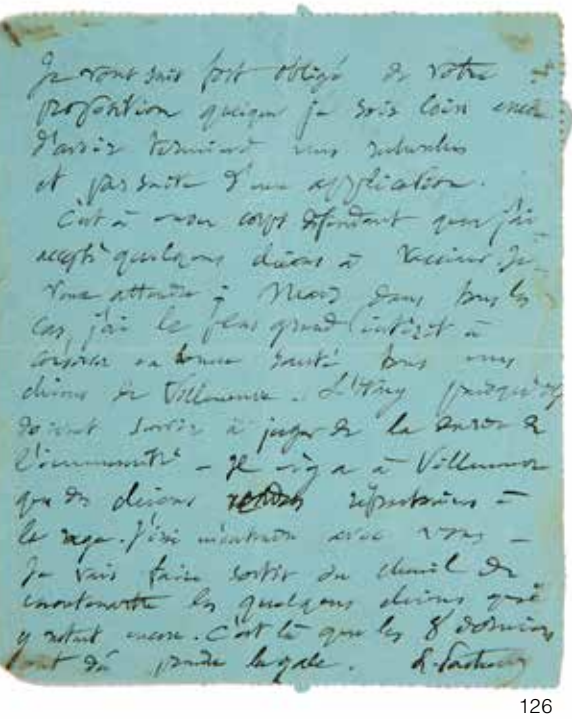 Je vous suis fort obligé de votre
proposition quoique je sois loin encore
d'avoir terminé mes recherches
et par suite d'une application.
C'est à mon corps défendant que j'ai
accepté quelques chiens à vacciner. Je
vous attendrai Mardi dans tous les
cas, j'ai le plus grand intérêt à
conserver en bonne santé tous mes
chiens de Villeneuve L'Etang puisqu'ils
doivent servir à juger de la durée de
l'immunité – Il n'y a à Villeneuve
que des chiens rendus réfractaires à
la rage. J'irai avec vous –
Je vais faire sortir du chenil de
les quelques chiens qui
y sont encore. C'est là que les 8 derniers
ont dû prendre la gale. L. Pasteur
126